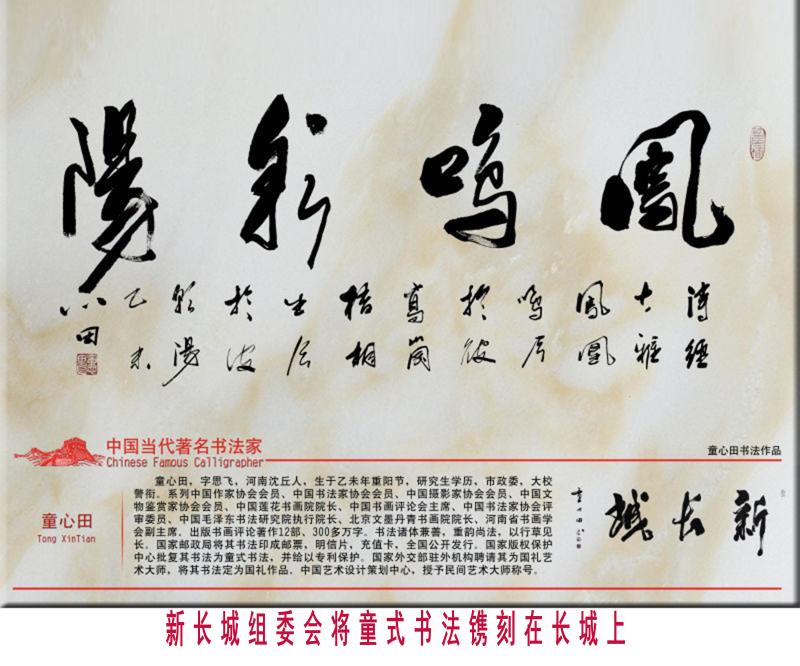 鳳鳴朝陽
詩經
大雅
鳳凰
鳴矣
於彼
高崗
梧桐
生矣
於彼
朝陽
乙未
心田
中国当代著名书法家
Chinese Famous Calligrapher
童心田书法作品
童心田
Tong XinTian
童心田，字思飞，河南沈丘人，生于乙未年重阳节，研究生学历，市政委，大校
警衔．系列中国作家协会会员、中国书法家协会会员、中国摄影家协会会员、中国文
物鉴赏家协会会员、中国莲花书画院院长、中国书画评论会主席、中国书法家协会评
审委员、中国毛泽东书法研究院执行院长、北京文墨丹青书画院院长、河南省书画学
会副主席．出版书画评论著作12部、300多万字。书法诸体兼善，重韵尚法，以行草见
长。国家邮政局将其书法印成邮票，明信片，充值卡，全国公开发行。国家版权保护
中心批复其书法为童式书法，并给以专利保护。国家外交部驻外机构聘请其为国礼艺
术大师，将其书法定为国礼作品．中国艺术设计策划中心，授予民间艺术大师称号。
新长城
童心田
新长城组委会将童式书法镌刻在长城上